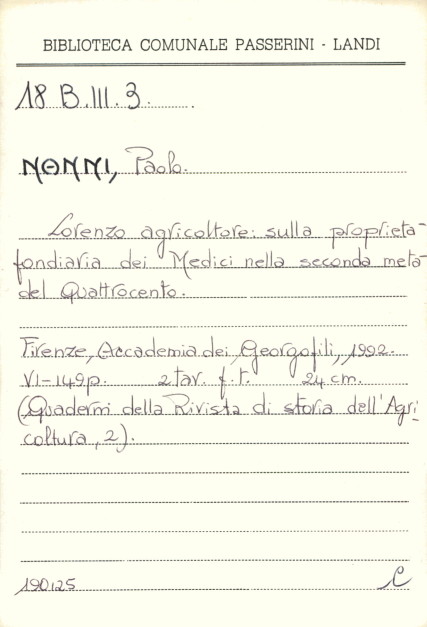 BIBLIOTECA COMUNALE PASSERINI - LANDI
18 B.III.3.
NONNI, Paolo.
Lorenzo agricoltore: sulla proprietà
fondiaria dei Medici nella seconda metà
del Quattrocento.
Firenze, Accademia dei Georgofili, 1992.
VI-149p. 2 tav. f.t. 24 cm.
(Quaderni della Rivista di storia dell'Agri-
coltura, 2).
190125